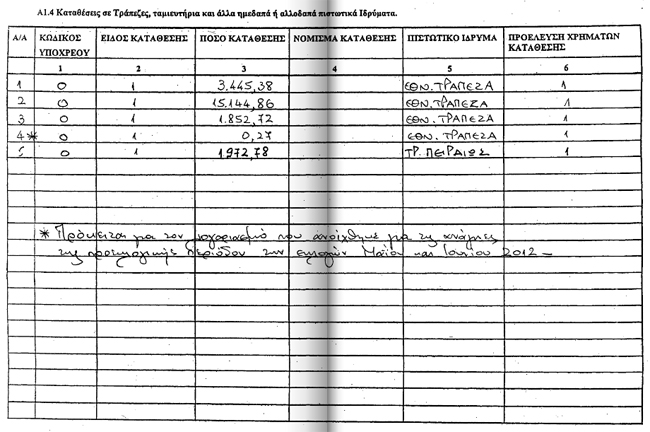 Α1.4 Καταθέσεις σε Τράπεζες, ταμιευτήρια και άλλα ημεδαπά ή αλλοδαπά πιστωτικά Ιδρύματα.
Α/Α ΚΩΔΙΚΟΣ ΥΠΟΧΡΕΟΥ ΕΙΔΟΣ ΚΑΤΑΘΕΣΗΣ ΠΟΣΟ ΚΑΤΑΘΕΣΗΣ ΝΟΜΙΣΜΑ ΚΑΤΑΘΕΣΗΣ ΠΙΣΤΩΤΙΚΟ ΙΔΡΥΜΑ ΠΡΟΕΛΕΥΣΗ ΧΡΗΜΑΤΩΝ ΚΑΤΑΘΕΣΗΣ
1 2 3 4 5 6
1 0 1 3.445,38 ΕΘΝ. ΤΡΑΠΕΖΑ 1
2 0 1 15.144,86 ΕΘΝ. ΤΡΑΠΕΖΑ 1
3 0 1 1.852,72 ΕΘΝ. ΤΡΑΠΕΖΑ 1
4* 0 1 0,27 ΕΘΝ. ΤΡΑΠΕΖΑ 1
5 0 1 1972,78 ΤΡ. ΠΕΙΡΑΙΩΣ 1
* Πρόκειται για τον λογαριασμό που ανοίχθηκε για τις ανάγκες
της προεκλογικής περιόδου των εκλογών Μαΐου και Ιουνίου 2012 -